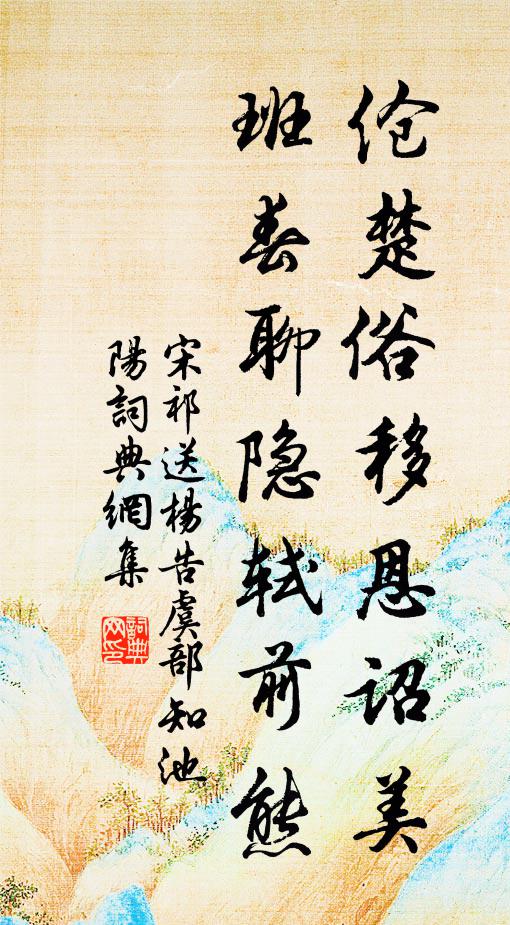 伧楚俗移恩诏美
班春聊隐轼前熊
宋祁送楊告虞部知池
陽詞典網集
詞典
网印